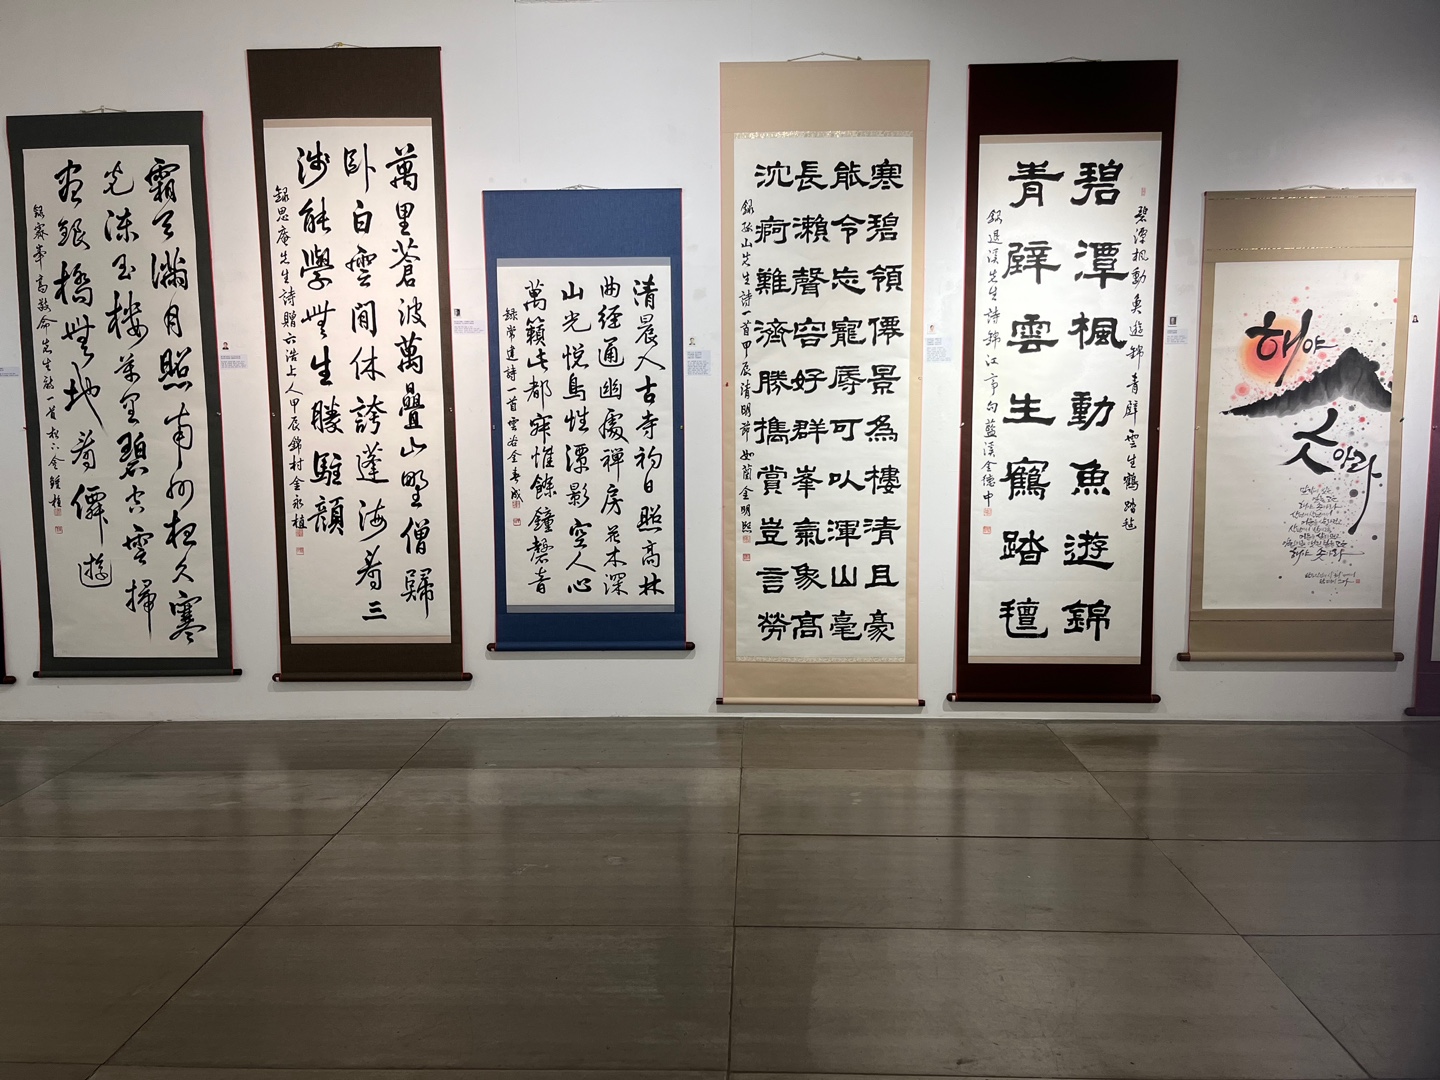 霜天滿月照南州夜久寒
光凍玉樓萬里碧空雲掃
盡銀橋無地看僊遊
錄霽峯高敬命先生詩一首
萬里蒼波萬疊山野僧歸
臥白雲間休誇蓬海看三
淺能學無生勝駐顔
錄思庵先生詩贈六浩上人甲辰錦村金永植
清晨入古寺初日照高林
曲徑通幽處禪房花木深
山光悦鳥性潭影空人心
萬籟此都寂惟餘鐘磬音
錄常建詩一首雲谷金春成
寒碧領僊景為樓清且豪
能令忘寵辱可以渾山毫
長瀨聲容好群峯氣象高
沈痾難濟勝擕賞豈言勞
錄孤山先生詩一首甲辰清明節如蘭金明熙
碧潭楓動魚遊錦青壁雲生鶴踏氊
碧潭楓動魚遊錦
青壁雲生鶴踏氊
錄退溪先生詩錦江亭句藍溪金德中
해야
솟아라